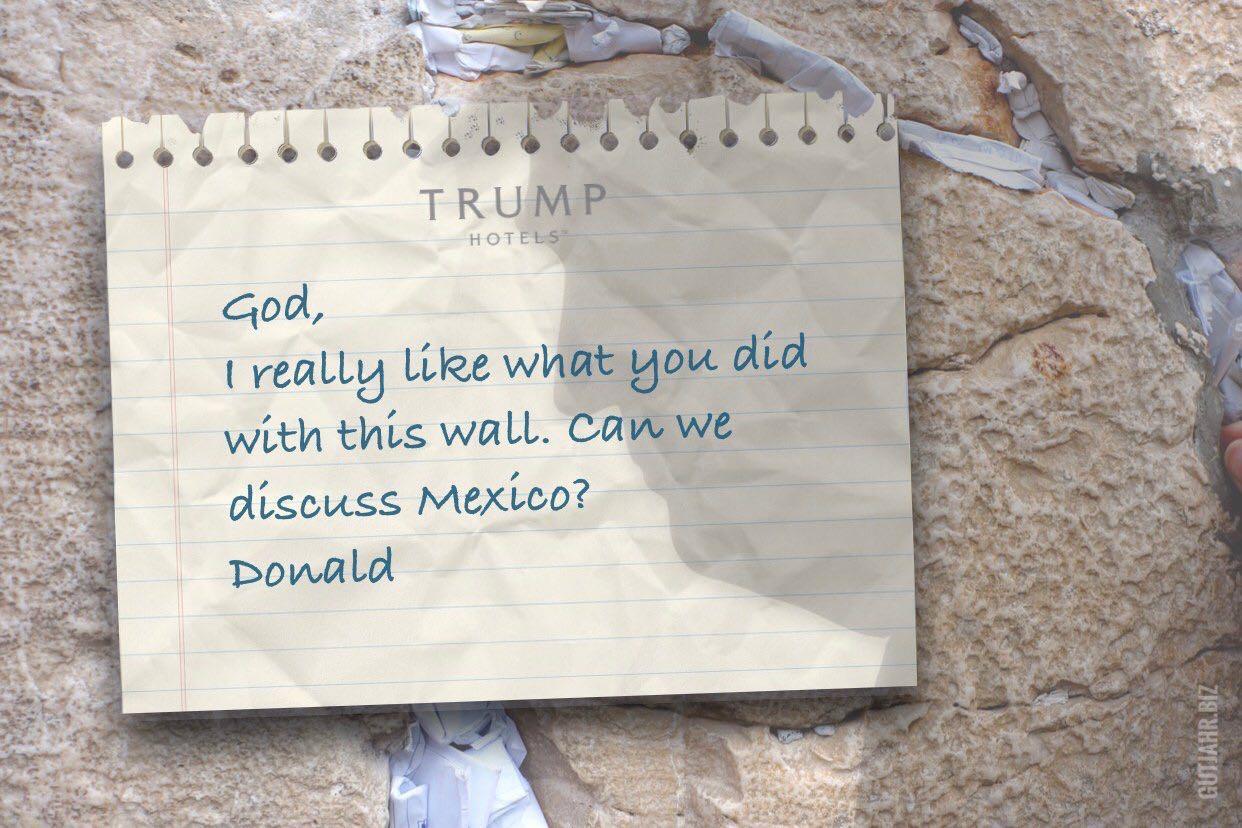 TRUMP
HOTELS™
God,
I really like what you did
with this wall. Can we
discuss Mexico?
Donald
GUTJAHR.BIZ